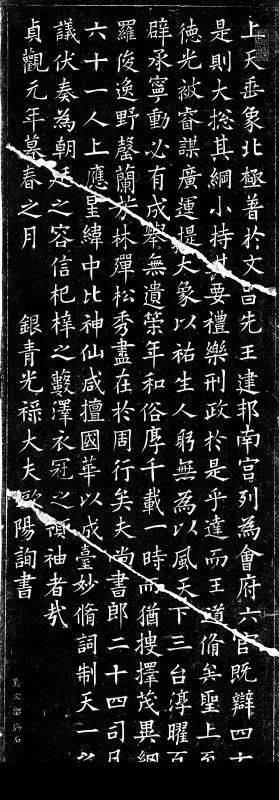 上天垂象北極著於文昌先王建邦南宫列為會府六官既辯四方
是則大揔其綱小持其要禮樂刑政於是乎達而王道脩矣聖上至
徳光被睿謀廣運提大象以祐生人躬無為以風天下三台淳曜百
辟承寧動必有成舉無遺策年和俗厚千載一時而猶搜擇茂異網
羅俊逸野罄蘭芳林殫松秀盡在於周行矣夫尚書郎二十四司凡
六十一人上應星緯中比神仙咸擅國華以成臺妙脩詞制天一之
議伏奏為朝廷之容信杞梓之藪澤衣冠之領袖者哉
貞觀元年暮春之月 銀青光祿大夫歐陽詢書